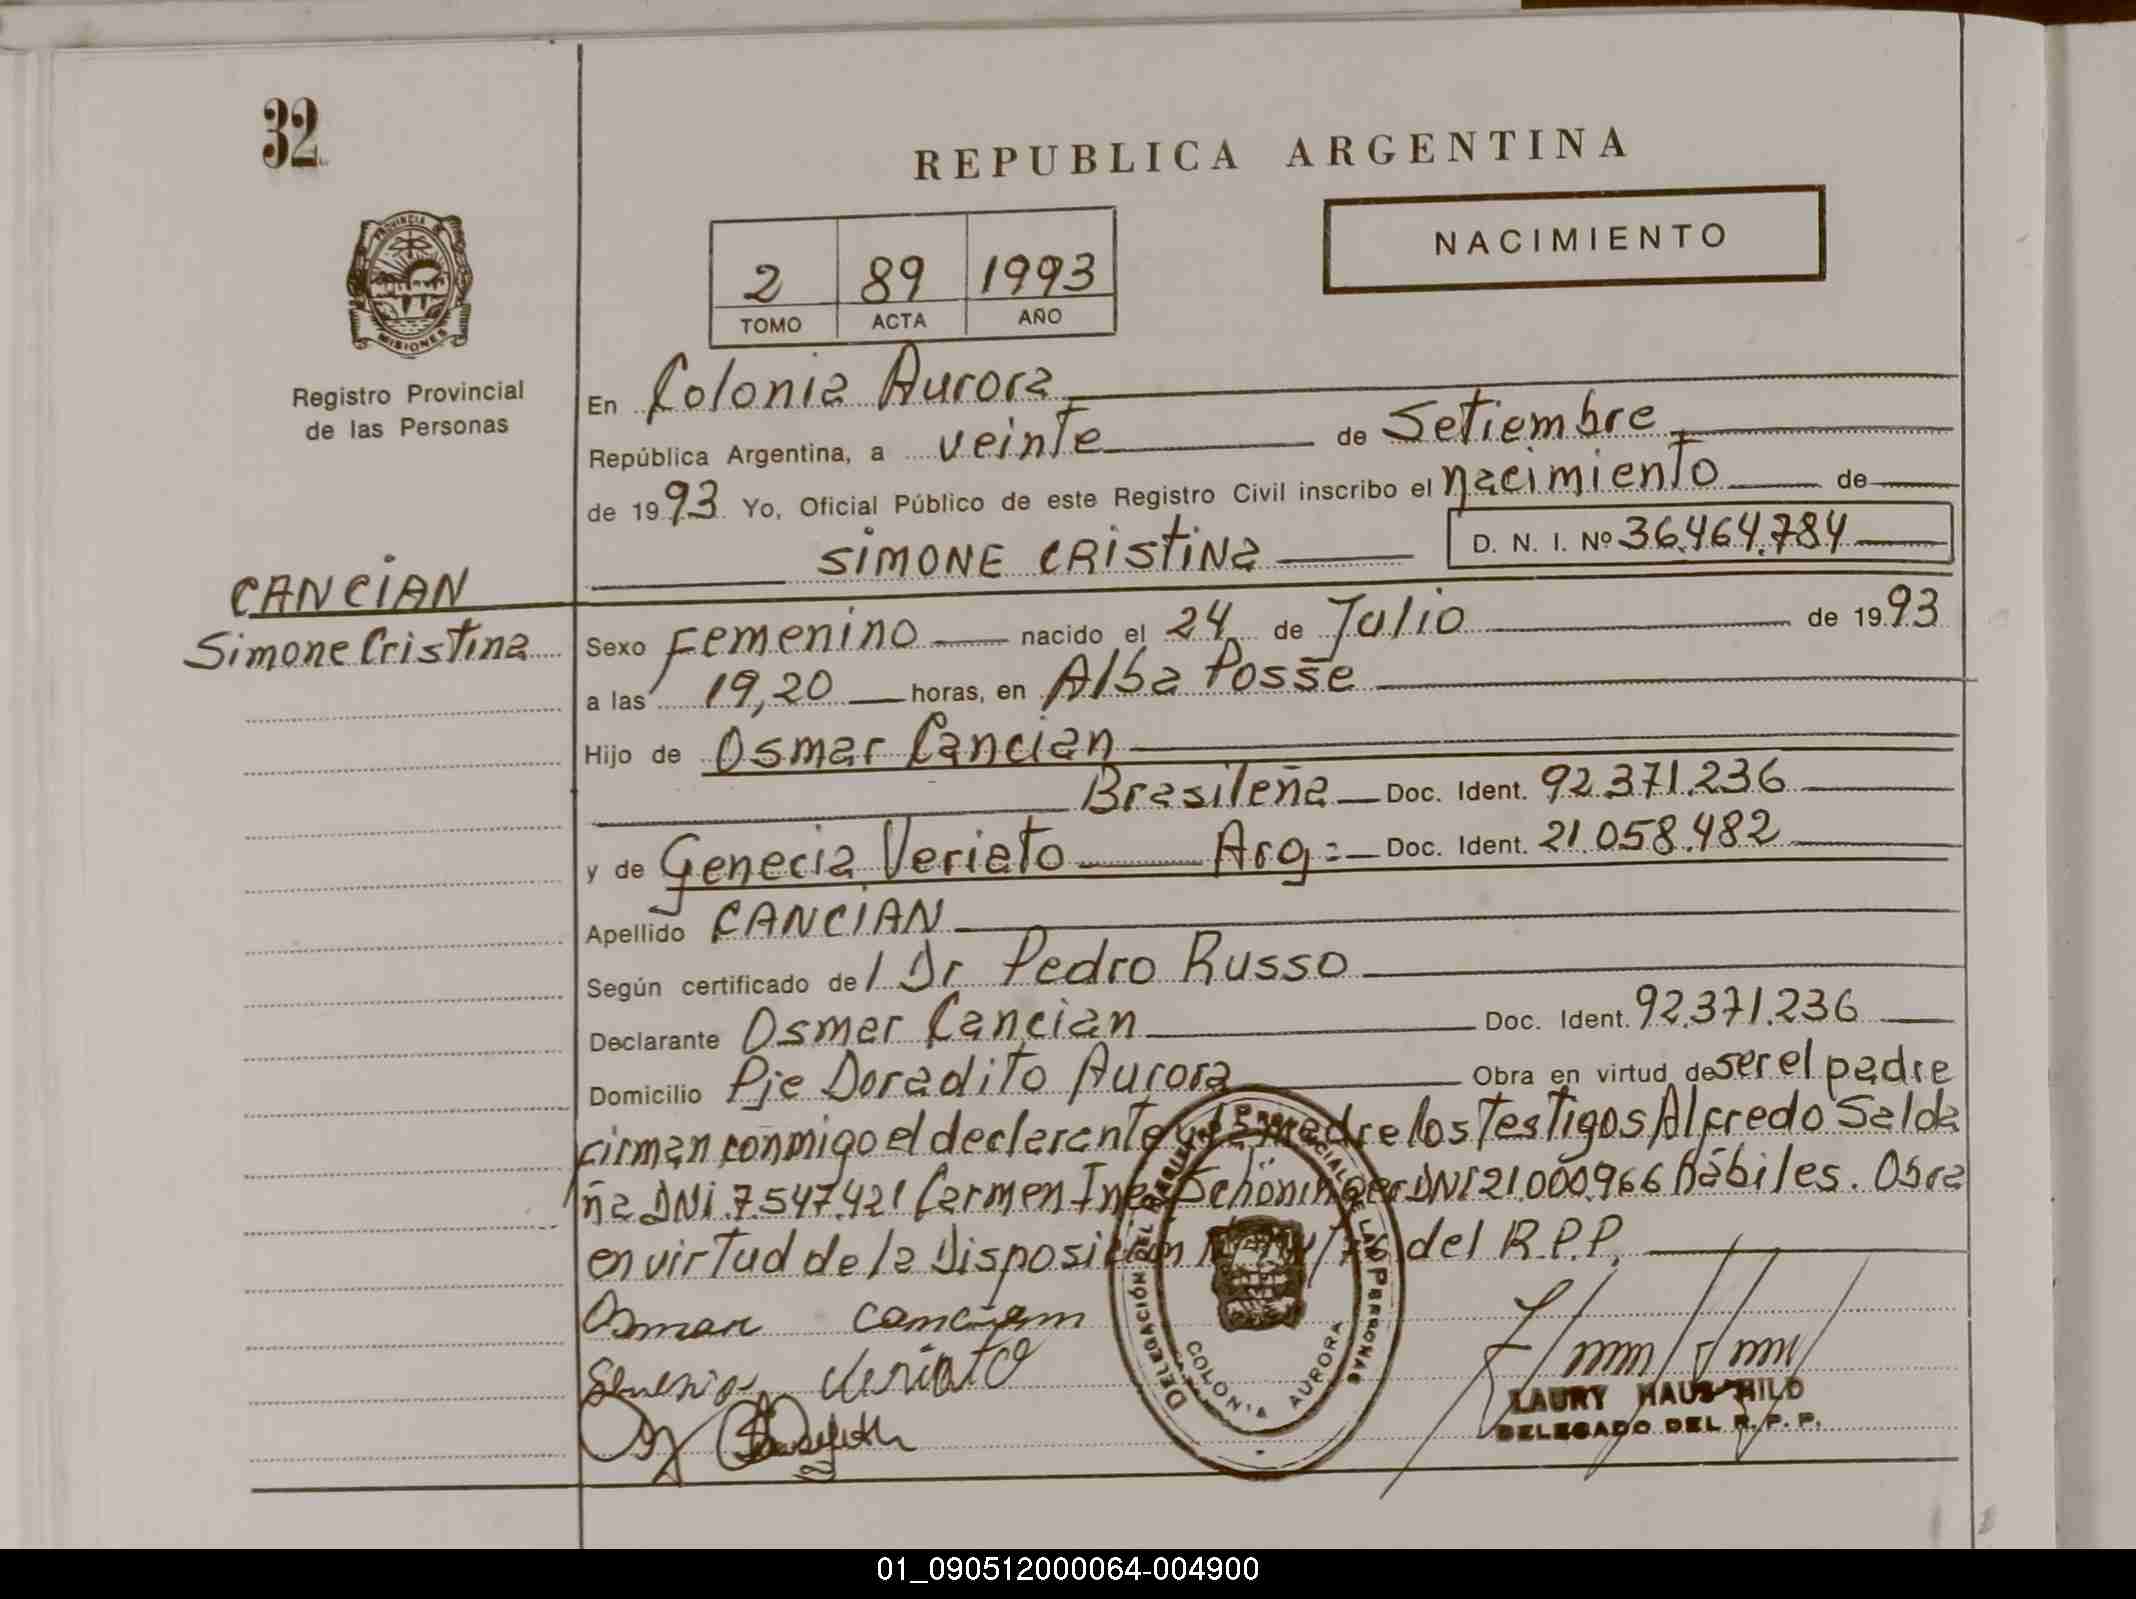 32
REPUBLICA ARGENTINA
NACIMIENTO
2 89 1993
TOMO ACTA AÑO
PROVINCIA
MISIONES
Registro Provincial
de las Personas
CANCIAN
Simone Cristina
En Colonia Aurora
República Argentina, a veinte de Setiembre
de 1993 Yo, Oficial Público de este Registro Civil inscribo el nacimiento de
SIMONE CRISTINA D. N. I. Nº 36.464.784
Sexo Femenino nacido el 24 de Julio de 1993
a las 19,20 horas, en Alba Posse
Hijo de Osmar Cancian
Brasileña Doc. Ident. 92.371.236
y de Genecia Veriato Arg= Doc. Ident. 21.058.482
Apellido CANCIAN
Según certificado de l Dr Pedro Russo
Declarante Osmar Cancian Doc. Ident. 92.371.236
Domicilio Pje Doradito Aurora Obra en virtud de ser el padre
firman conmigo el declarante y la madre los testigos Alfredo Salda
ña DNI.7.547.421 Carmen Ines Schöninger DNI 21.000.966 hábiles. Obra
en virtud de la Disposición del R.P.P.
Osmar cancian
Veriato
DELEGACIÓN DEL REGISTRO PROVINCIAL DE LAS PERSONAS
COLONIA AURORA
LAURY HAUSCHILD
DELEGADO DEL R. P. P.
01_090512000064-004900